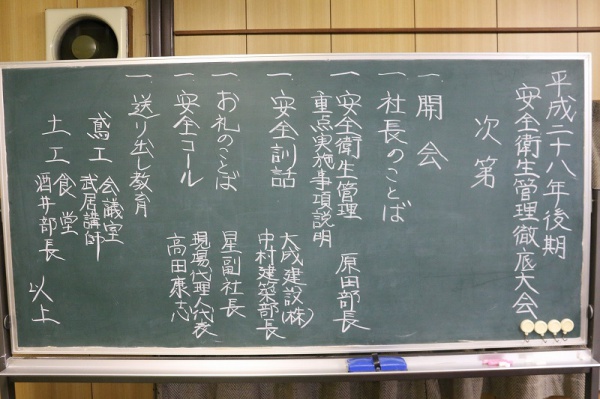 平成二十八年後期
安全衛生管理徹底大会
次第
一 開会
一 社長のことば
一 安全衛生管理
重点実施事項説明 原田部長
一 安全訓話 大成建設(株)
中村建築部長
一 お礼のことば 星副社長
一 安全コール 現場代理人代表
高田康志
一 送り出し教育
鳶工 会議室
武居講師
土工 食堂
酒井部長
以上